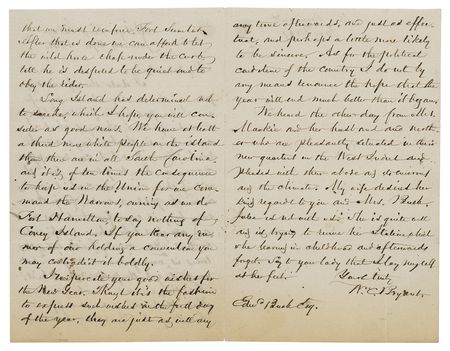 that we must reinforce Fort Sumter.
After that is done we can afford to let
the wild horse chafe under the curb
till he is disposed to be quiet and to
obey the rider.
Long Island has determined not
to secede, which I hope you will con-
sider as good news. We have at least
a third more white people on the island
than there are in all South Carolina,
and it is of ten times the consequence
to keep us in the Union for we com-
mand the Narrows, owning as we do
Fort Hamilton, to say nothing of
Coney Island. If you hear any ru-
mor of our holding a convention you
may contradict it boldly.
I reciprocate your good wishes for
the New Year. Though it is the fashion
to express such wishes on the first day
of the year, they are just as well any
time afterwards, are just as effec-
tual, and perhaps a little more likely
to be sincere. As for the political
condition of the country I do not by
any means renounce the hope that the
year will end much better than it began.
We heard the other day from Mrs.
Mackie and her husband and moth-
er who are pleasantly situated in their
new quarters in the West Indies and
pleased with their abode and
the climate. My wife desires her
kind regards to you and Mrs. Buck.
Julia is not with us. She is quite well
and is trying to revive her Italian which
she learned in childhood and afterwards
forgot. to your lady that I lay myself
at her feet.
Yours truly
W. C. Bryant
Edwd Buck Esq.